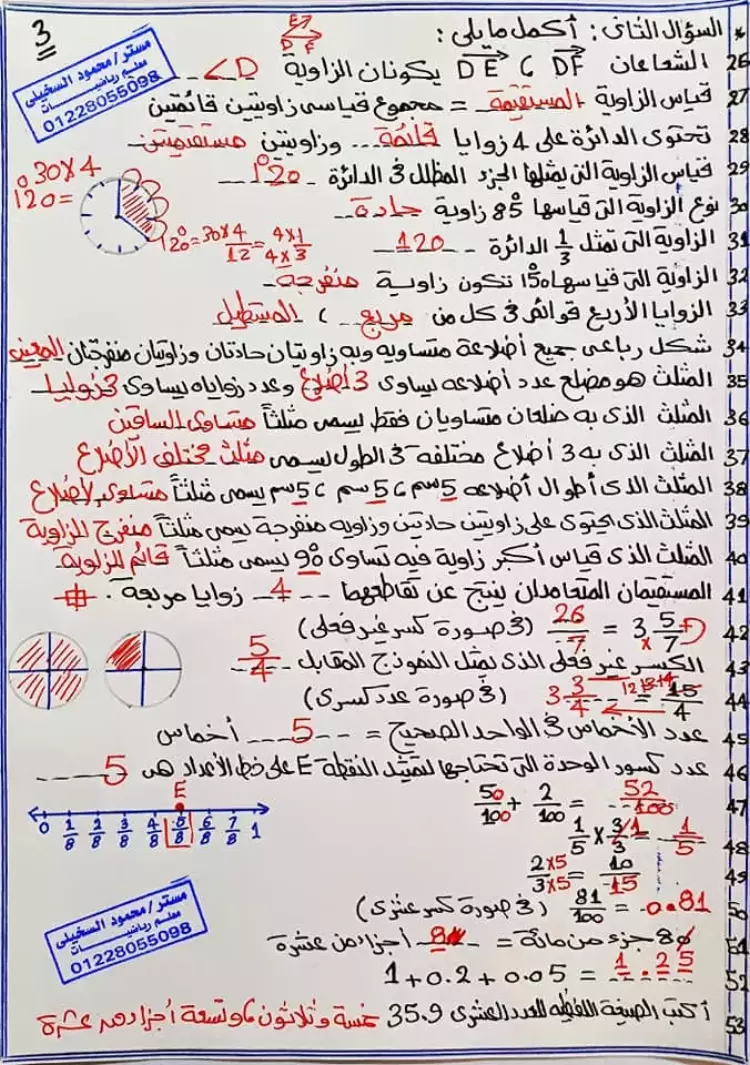 3
* السؤال الثانى : أكمل ما يلى :
E
D F
مستر / محمود السخيلى
معلم رياضيات
01228055098
26 الشعاعان DF ، DE يكونان الزاوية D>
27 قياس الزاوية المستقيمة = مجموع قياسى زاويتين قائمتين
28 تحتوى الدائرة على 4 زوايا قائمة وزاويتين مستقيمتين
29 قياس الزاوية التى يمثلها الجزء المظلل فى الدائرة 120°
30×4
120° =
30 نوع الزاوية التى قياسها 85° زاوية حادة
31 الزاوية التى تمثل 1/3 الدائرة 120
120° = 30×4/12 = 4×1/4×3
32 الزاوية التى قياسها 150° تكون زاوية منفرجة
33 الزوايا الأربع قوائم فى كل من مربع ، المستطيل
34 شكل رباعى جميع أضلاعة متساويه وبه زاويتان حادتان وزاويتان منفرجتان المعين
35 المثلث هو مضلع عدد أضلاعه يساوى 3 أضلاع وعدد زواياه يساوى 3 زوايا
36 المثلث الذى به ضلعان متساويان فقط يسمى مثلثاً متساوى الساقين
37 المثلث الذى به 3 أضلاع مختلفه فى الطول يسمى مثلث مختلف الأضلاع
38 المثلث الذى أطوال أضلاعه 5سم ، 5سم ، 5سم يسمى مثلثاً متساوى الأضلاع
39 المثلث الذى يحتوى على زاويتين حادتين وزاويه منفرجة يسمى مثلثاً منفرج الزاوية
40 المثلث الذى قياس أكبر زاوية فيه تساوى 90° يسمى مثلثاً قائم الزاوية
41 المستقيمان المتعامدان ينتج عن تقاطعهما 4 زوايا مربعة .
42 3 5/7 = 26/7 (فى صورة كسر غير فعلى)
43 الكسر غير فعلى الذى يمثل النموذج المقابل 5/4
44 15/4 = 3 3/4 (فى صورة عدد كسرى)
45 عدد الأخماس فى الواحد الصحيح = 5 أخماس
46 عدد كسور الوحدة التى تحتاجها لتمثيل النقطة E على خط الأعداد هى 5
E
0 1/8 2/8 3/8 4/8 5/8 6/8 7/8 1
47 50/100 + 2/100 = 52/100
48 1/5 × 3/3 = 1/5
49 2×5/3×5 = 10/15
50 81/100 = 0.81 (فى صورة كسر عشرى)
51 80 جزء من مائة = 8 أجزاء من عشرة
52 1 + 0.2 + 0.05 = 1.25
53 أكتب الصيغة اللفظيه للعدد العشرى 35.9 خمسة وثلاثون ، وتسعة أجزاء من عشرة
مستر / محمود السخيلى
معلم رياضيات
01228055098